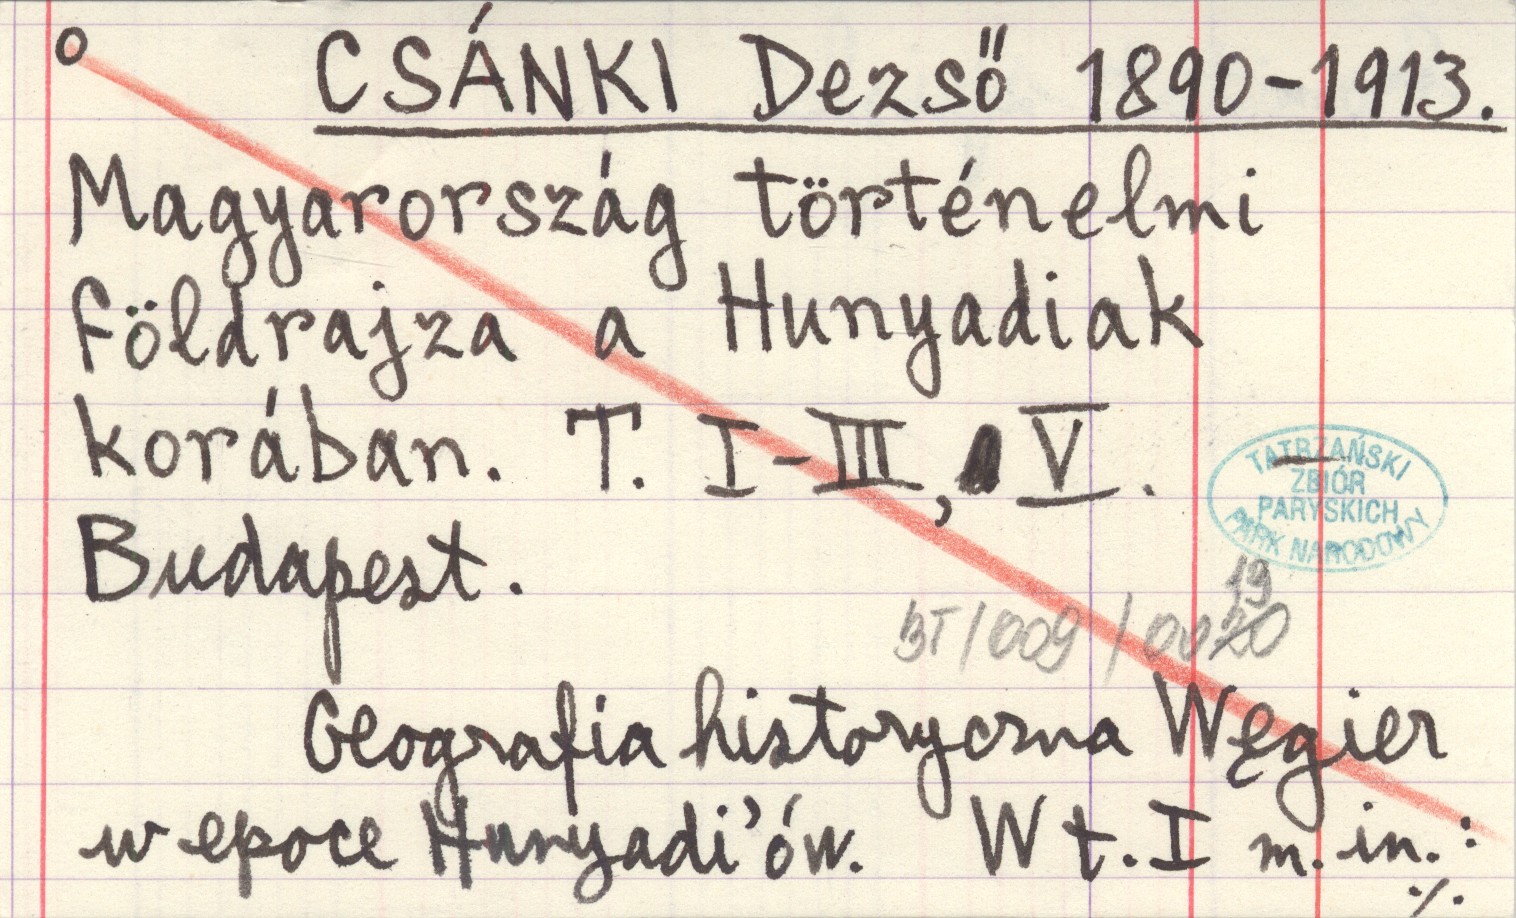 CSÁNKI Dezső 1890-1913.
Magyarország történelmi
földrajza a Hunyadiak
korában. T. I-III, V.
TATRZAŃSKI
ZBIÓR
PARYSKICH
PARK NARODOWY
Budapest.
19
BT/009/0020
Geografia historyczna Węgier
w epoce Hunyadi'ów. W t. I m. in.:
./.